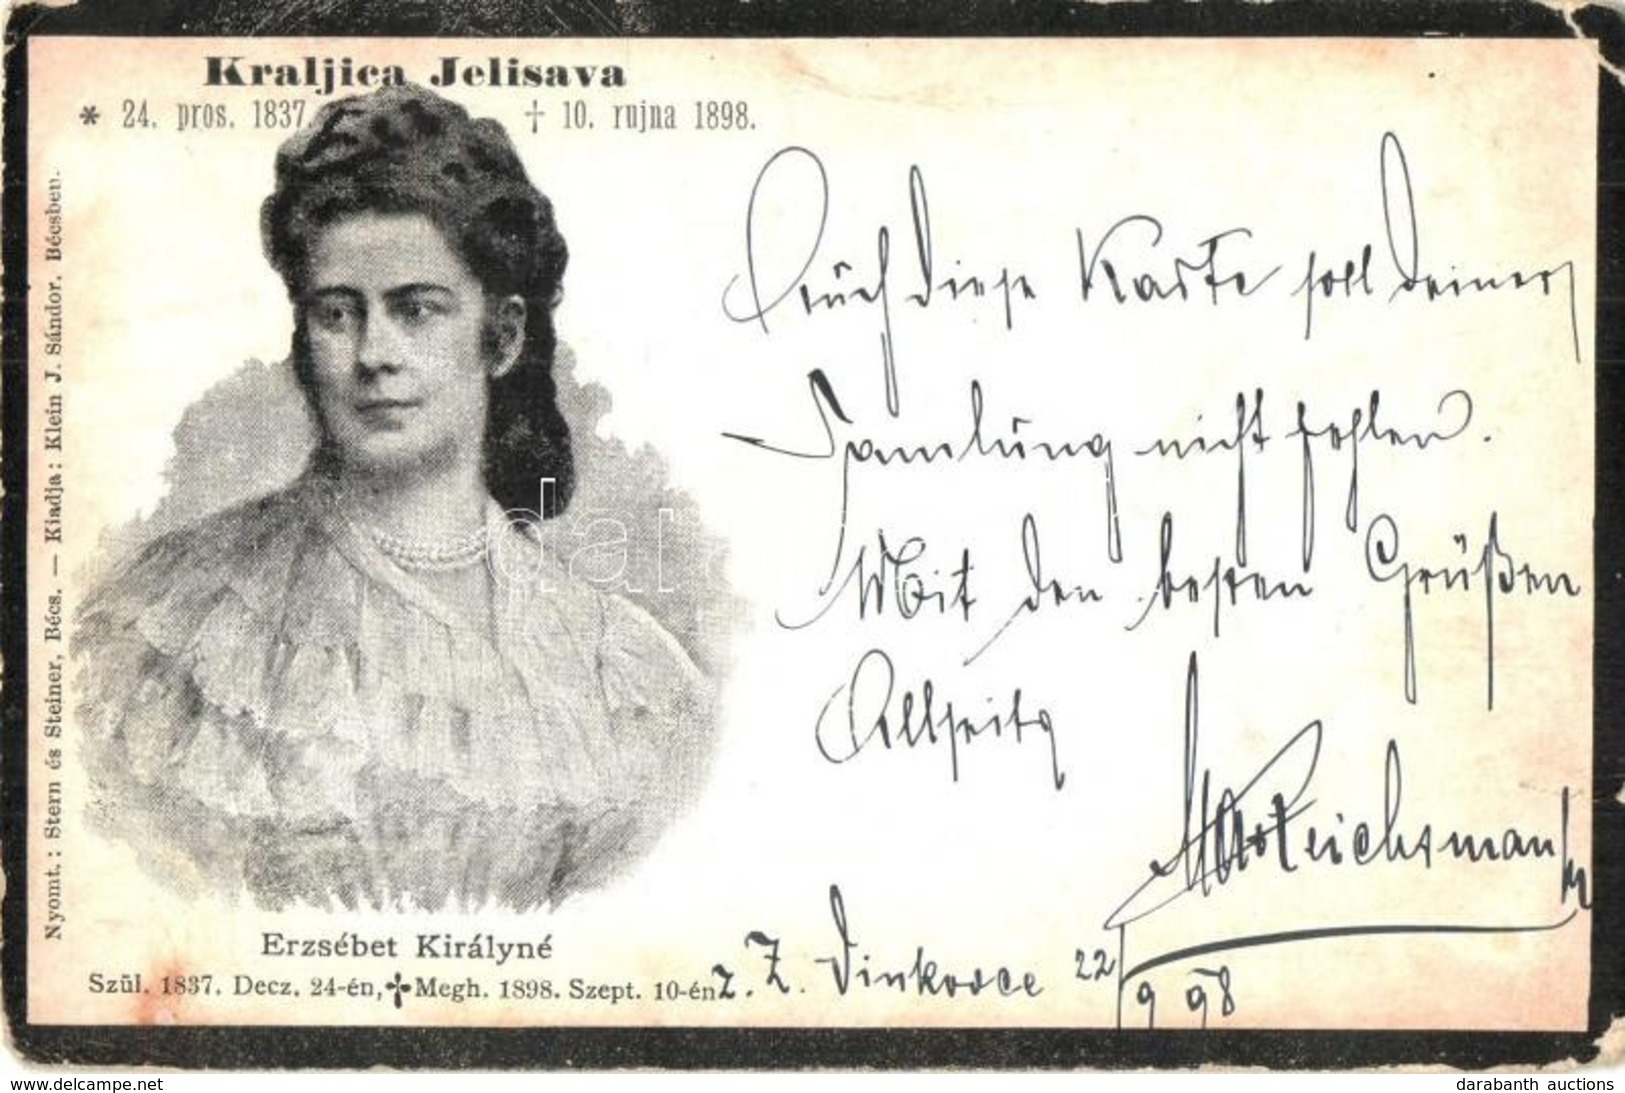 Kraljica Jelisava
* 24. pros. 1837. † 10. rujna 1898.
Nyomt.: Stern és Steiner, Bécs. — Kiadja: Klein J. Sándor. Bécsben.
Auch diese Karte soll deiner
Samlung nicht fehlen.
Mit den besten Grüßen
Allseits
Reichsmann
Erzsébet Királyné
Szül. 1837. Decz. 24-én, † Megh. 1898. Szept. 10-én
Z. Z. Vinkovce 22/9 98
dar
your-site.com
darabanth auctions